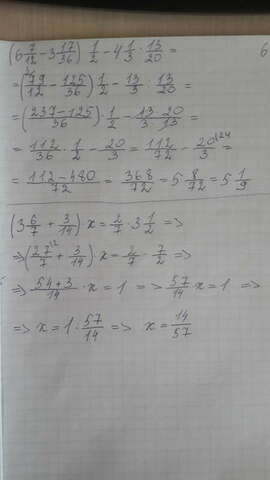 (6 7/12 - 3 17/36) · 1/2 - 4 1/3 · 13/20 =
= (79/12 - 125/36) · 1/2 - 13/3 · 13/20 =
= (237-125/36) · 1/2 - 13·20/3·13 =
= 112/36 · 1/2 - 20/3 = 112/72 - 20/3 =
= 112-480/72 = 368/72 = 5 8/72 = 5 1/9
(3 6/7 + 3/14) x = 2/7 · 3 1/2 =>
=> (27/7 + 3/14) · x = 2/7 · 7/2 =>
=> 54+3/14 · x = 1 => 57/14 x = 1 =>
=> x = 1 : 57/14 => x = 14/57